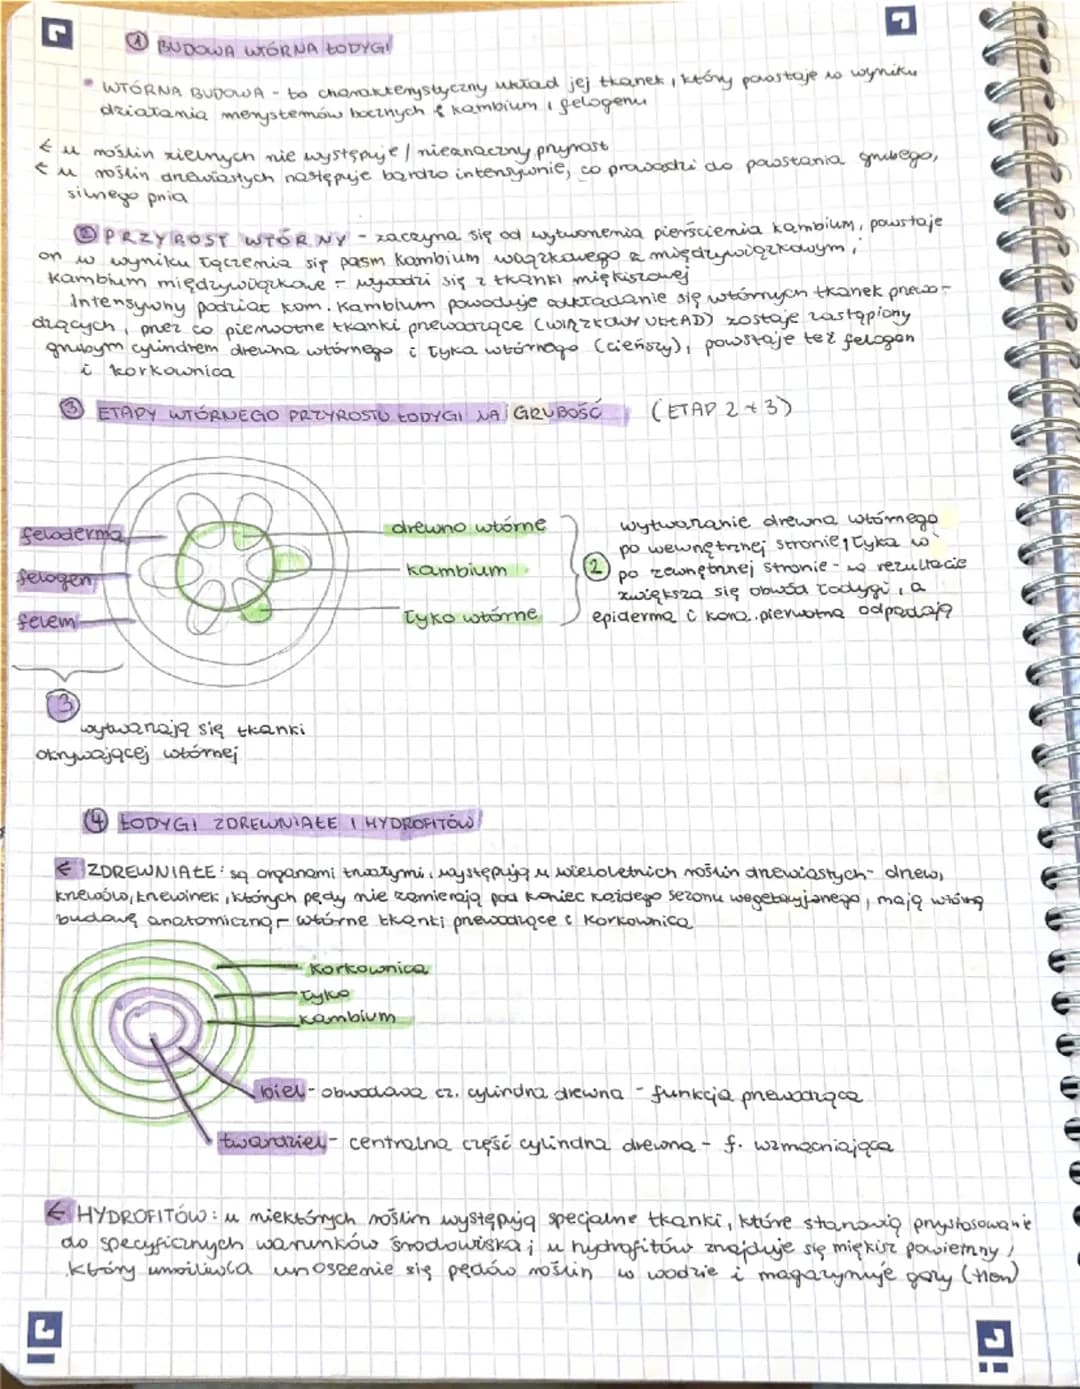 ① BUDOWA WTÓRNA ŁODYGI
• WTÓRNA BUDOWA - to charakterystyczny układ jej tkanek, który powstaje w wyniku
działania merystemów bocznych kambium i felogenu
← u roślin zielnych nie występuje / nieznaczny przyrost
← u roślin drzewiastych następuje bardzo intensywnie, co prowadzi do powstania grubego,
silnego pnia
② PRZYROST WTÓRNY - zaczyna się od wytworzenia pierścienia kambium, powstaje
on w wyniku łączenia się pasm kambium wiązkowego z międzywiązkowym;
kambium międzywiązkowe - wywodzi się z tkanki miękiszowej
Intensywny podział kom. kambium powoduje odkładanie się wtórnych tkanek przewo-
dzących, przez co pierwotne tkanki przewodzące (WIĄZKOWY UKŁAD) zostaje zastąpiony
grubym cylindrem drewna wtórnego i łyka wtórnego (cieńszy), powstaje też felogen
i korkownica
③ ETAPY WTÓRNEGO PRZYROSTU ŁODYGI NA GRUBOŚĆ (ETAP 2 + 3)
feloderma
felogen
felem
drewno wtórne
kambium
łyko wtórne
②
wytwarzanie drewna wtórnego
po wewnętrznej stronie, łyka w
po zewnętrznej stronie - w rezultacie
zwiększa się obwód łodygi, a
epiderma i kora pierwotna odpadają
③
wytwarzają się tkanki
okrywającej wtórnej
④ ŁODYGI ZDREWNIAŁE I HYDROFITÓW
← ZDREWNIAŁE: są organami trwałymi, występują u wieloletnich roślin drzewiastych - drzew,
krzewów, krzewinek, których pędy nie zamierają pod koniec każdego sezonu wegetacyjnego, mają wtórną
budowę anatomiczną - wtórne tkanki przewodzące i korkownica
korkownica
łyko
kambium
biel - obwodowa cz. cylindra drewna - funkcja przewodząca
twardziel - centralna część cylindra drewna - f. wzmacniająca
← HYDROFITÓW: u niektórych roślin występują specjalne tkanki, które stanowią przystosowanie
do specyficznych warunków środowiska; u hydrofitów znajduje się miękisz powietrzny,
który umożliwia unoszenie się pędów roślin w wodzie i magazynuje gazy (tlen)